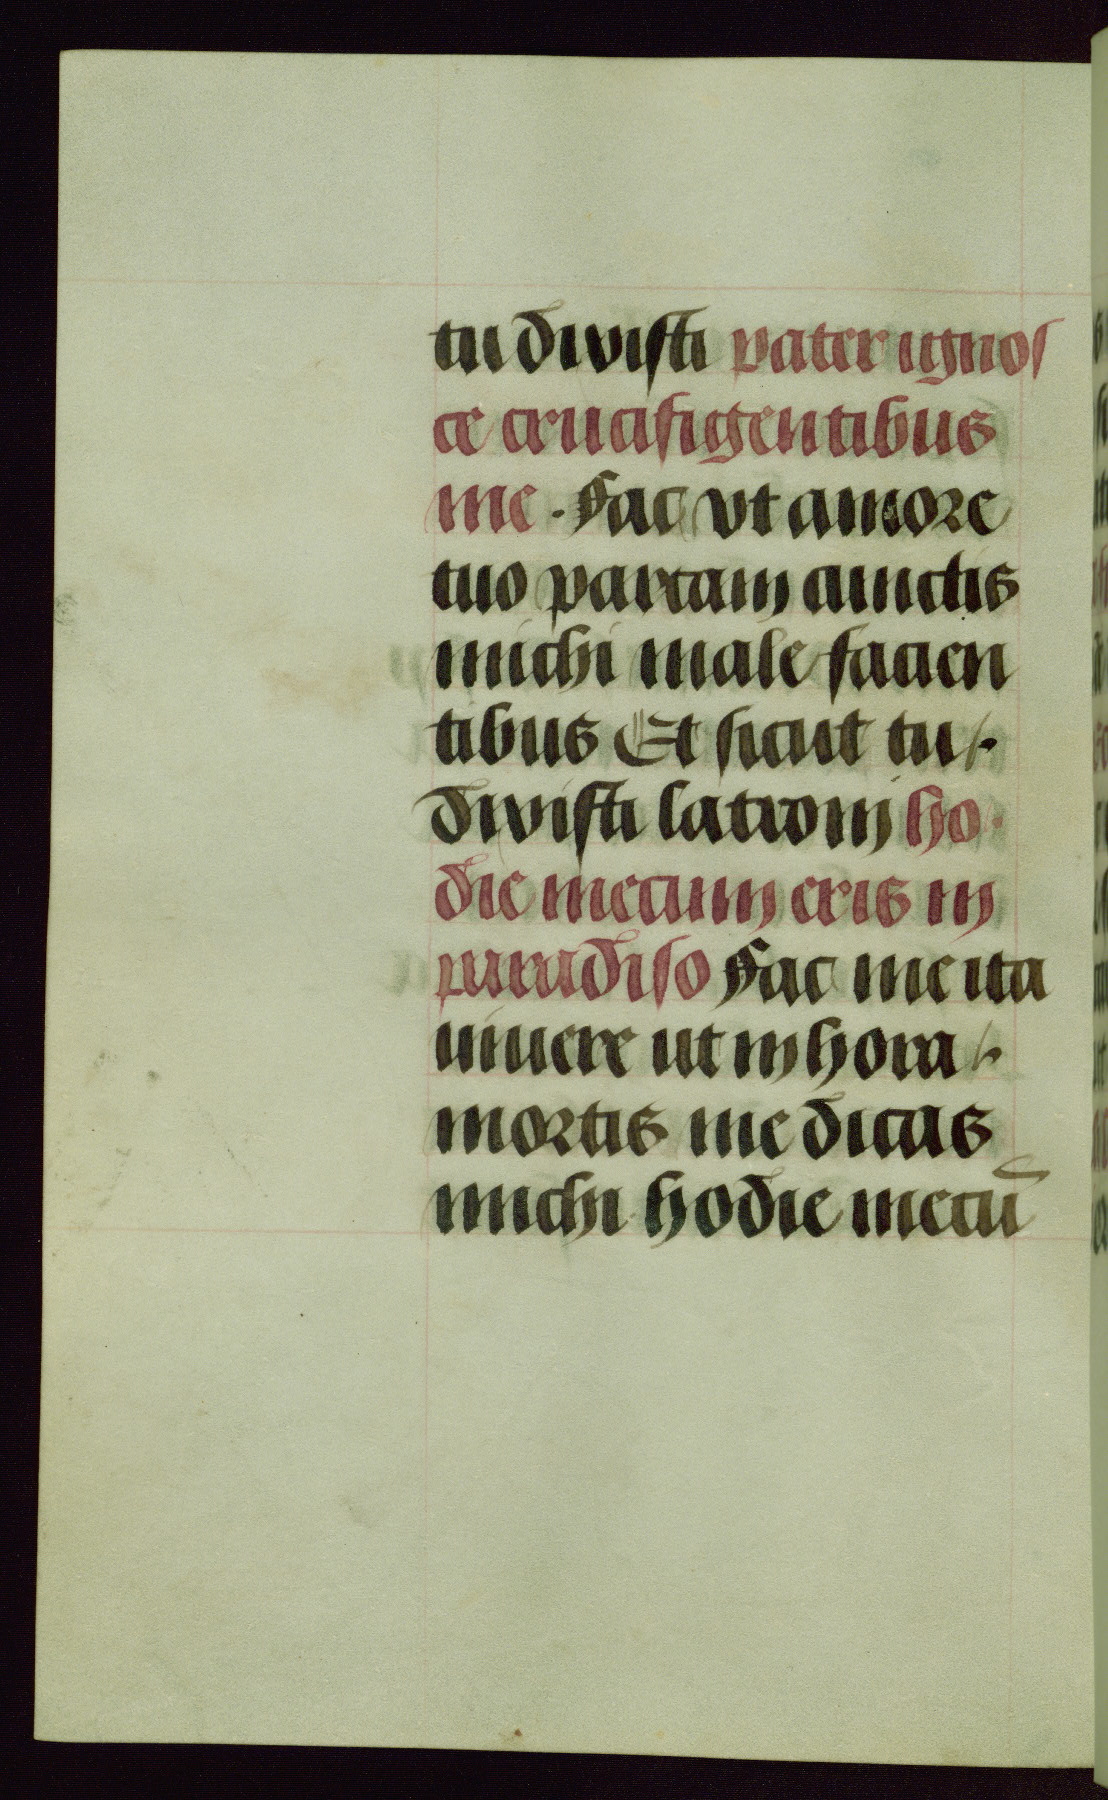 tu dixisti pater ignos
ce crucifigentibus
me . Fac vt amore
tuo parcam cunctis
michi male facien
tibus Et sicut tu
dixisti latroni ho
die mecum eris in
paradiso Fac me ita
uiuere ut in hora
mortis me dicas
michi hodie mecū